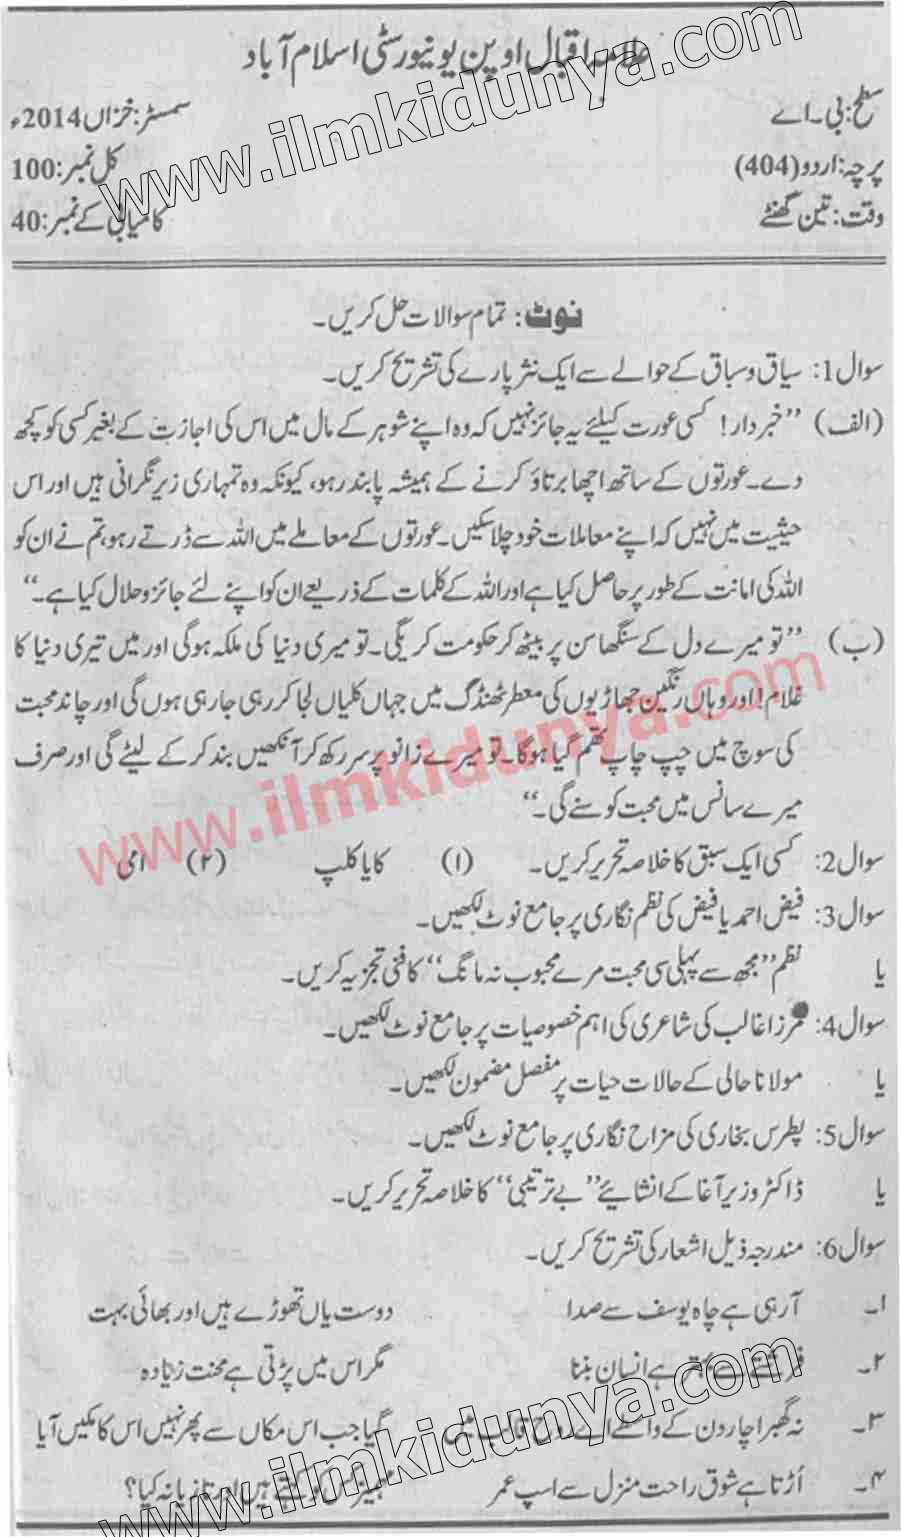 علامہ اقبال اوپن یونیورسٹی اسلام آباد
سطح: بی۔اے سمسٹر: خزاں 2014ء
پرچہ: اردو (404) کل نمبر: 100
وقت: تین گھنٹے کامیابی کے نمبر: 40
www.ilmkidunya.com
نوٹ: تمام سوالات حل کریں۔
سوال 1: سیاق و سباق کے حوالے سے ایک نثر پارے کی تشریح کریں۔
(الف) ”خبردار! کسی عورت کیلئے یہ جائز نہیں کہ وہ اپنے شوہر کے مال میں اس کی اجازت کے بغیر کسی کو کچھ
دے۔ عورتوں کے ساتھ اچھا برتاؤ کرنے کے ہمیشہ پابند رہو، کیونکہ وہ تمہاری زیر نگرانی ہیں اور اس
حیثیت میں نہیں کہ اپنے معاملات خود چلا سکیں۔ عورتوں کے معاملے میں اللہ سے ڈرتے رہو، تم نے ان کو
اللہ کی امانت کے طور پر حاصل کیا ہے اور اللہ کے کلمات کے ذریعے ان کو اپنے لئے جائز و حلال کیا ہے۔“
(ب) ”تو میرے دل کے سنگھاسن پر بیٹھ کر حکومت کریگی۔ تو میری دنیا کی ملکہ ہوگی اور میں تیری دنیا کا
غلام! اور وہاں رنگین جھاڑیوں کی معطر ٹھنڈک میں جہاں کلیاں لجا کر رہی جا رہی ہوں گی اور چاند محبت
کی سوچ میں چپ چاپ تھم گیا ہوگا۔ تو میرے زانو پر سر رکھ کر آنکھیں بند کر کے لیٹے گی اور صرف
میرے سانس میں محبت کو سنے گی۔“
www.ilmkidunya.com
سوال 2: کسی ایک سبق کا خلاصہ تحریر کریں۔ (۱) کایا کلپ (۲) امی
سوال 3: فیض احمد یا فیض کی نظم نگاری پر جامع نوٹ لکھیں۔
یا نظم ”مجھ سے پہلی سی محبت مرے محبوب نہ مانگ“ کا فنی تجزیہ کریں۔
سوال 4: مرزا غالب کی شاعری کی اہم خصوصیات پر جامع نوٹ لکھیں۔
یا مولانا حالی کے حالات حیات پر مفصل مضمون لکھیں۔
سوال 5: پطرس بخاری کی مزاح نگاری پر جامع نوٹ لکھیں۔
یا ڈاکٹر وزیر آغا کے انشائیے ”بے ترتیبی“ کا خلاصہ تحریر کریں۔
سوال 6: مندرجہ ذیل اشعار کی تشریح کریں۔
۱۔ آ رہی ہے چاہ یوسف سے صدا دوست یاں تھوڑے ہیں اور بھائی بہت
۲۔ فرشتے سے بہتر ہے انسان بننا مگر اس میں پڑتی ہے محنت زیادہ
۳۔ نہ گھبرا چار دن کے واسطے اے روح قالب میں گیا جب اس مکاں سے پھر نہیں اس کا مکیں آیا
۴۔ اُڑتا ہے شوق راحت منزل سے اسپ عمر مہمیز کس کو کہتے ہیں اور تازیانہ کیا؟
www.ilmkidunya.com